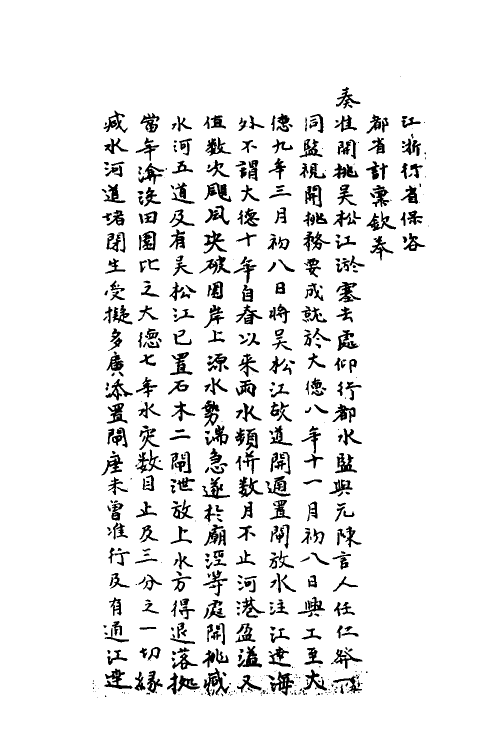 江浙行省保咨
都省計稟欽奉
奏准開挑吳松江淤塞去處仰行都水監與元陳言人任仁發一
同監視開挑務要成就於大德八年十一月初八日興工至大
德九年三月初八日將吳松江故道開通置閘放水注江達海
外不謂大德十年自春以來雨水頻併數月不止河港盈溢又
值數次颶風突破圍岸上源水勢湍急遂於廟涇等處開挑減
水河五道及有吳松江已置石木二閘泄放上水方得退落拠
當年渰没田圍比之大德七年水灾数目止及三分之一切緣
減水河道堵閉生受擬多廣添置閘座未曾准行及有通江達